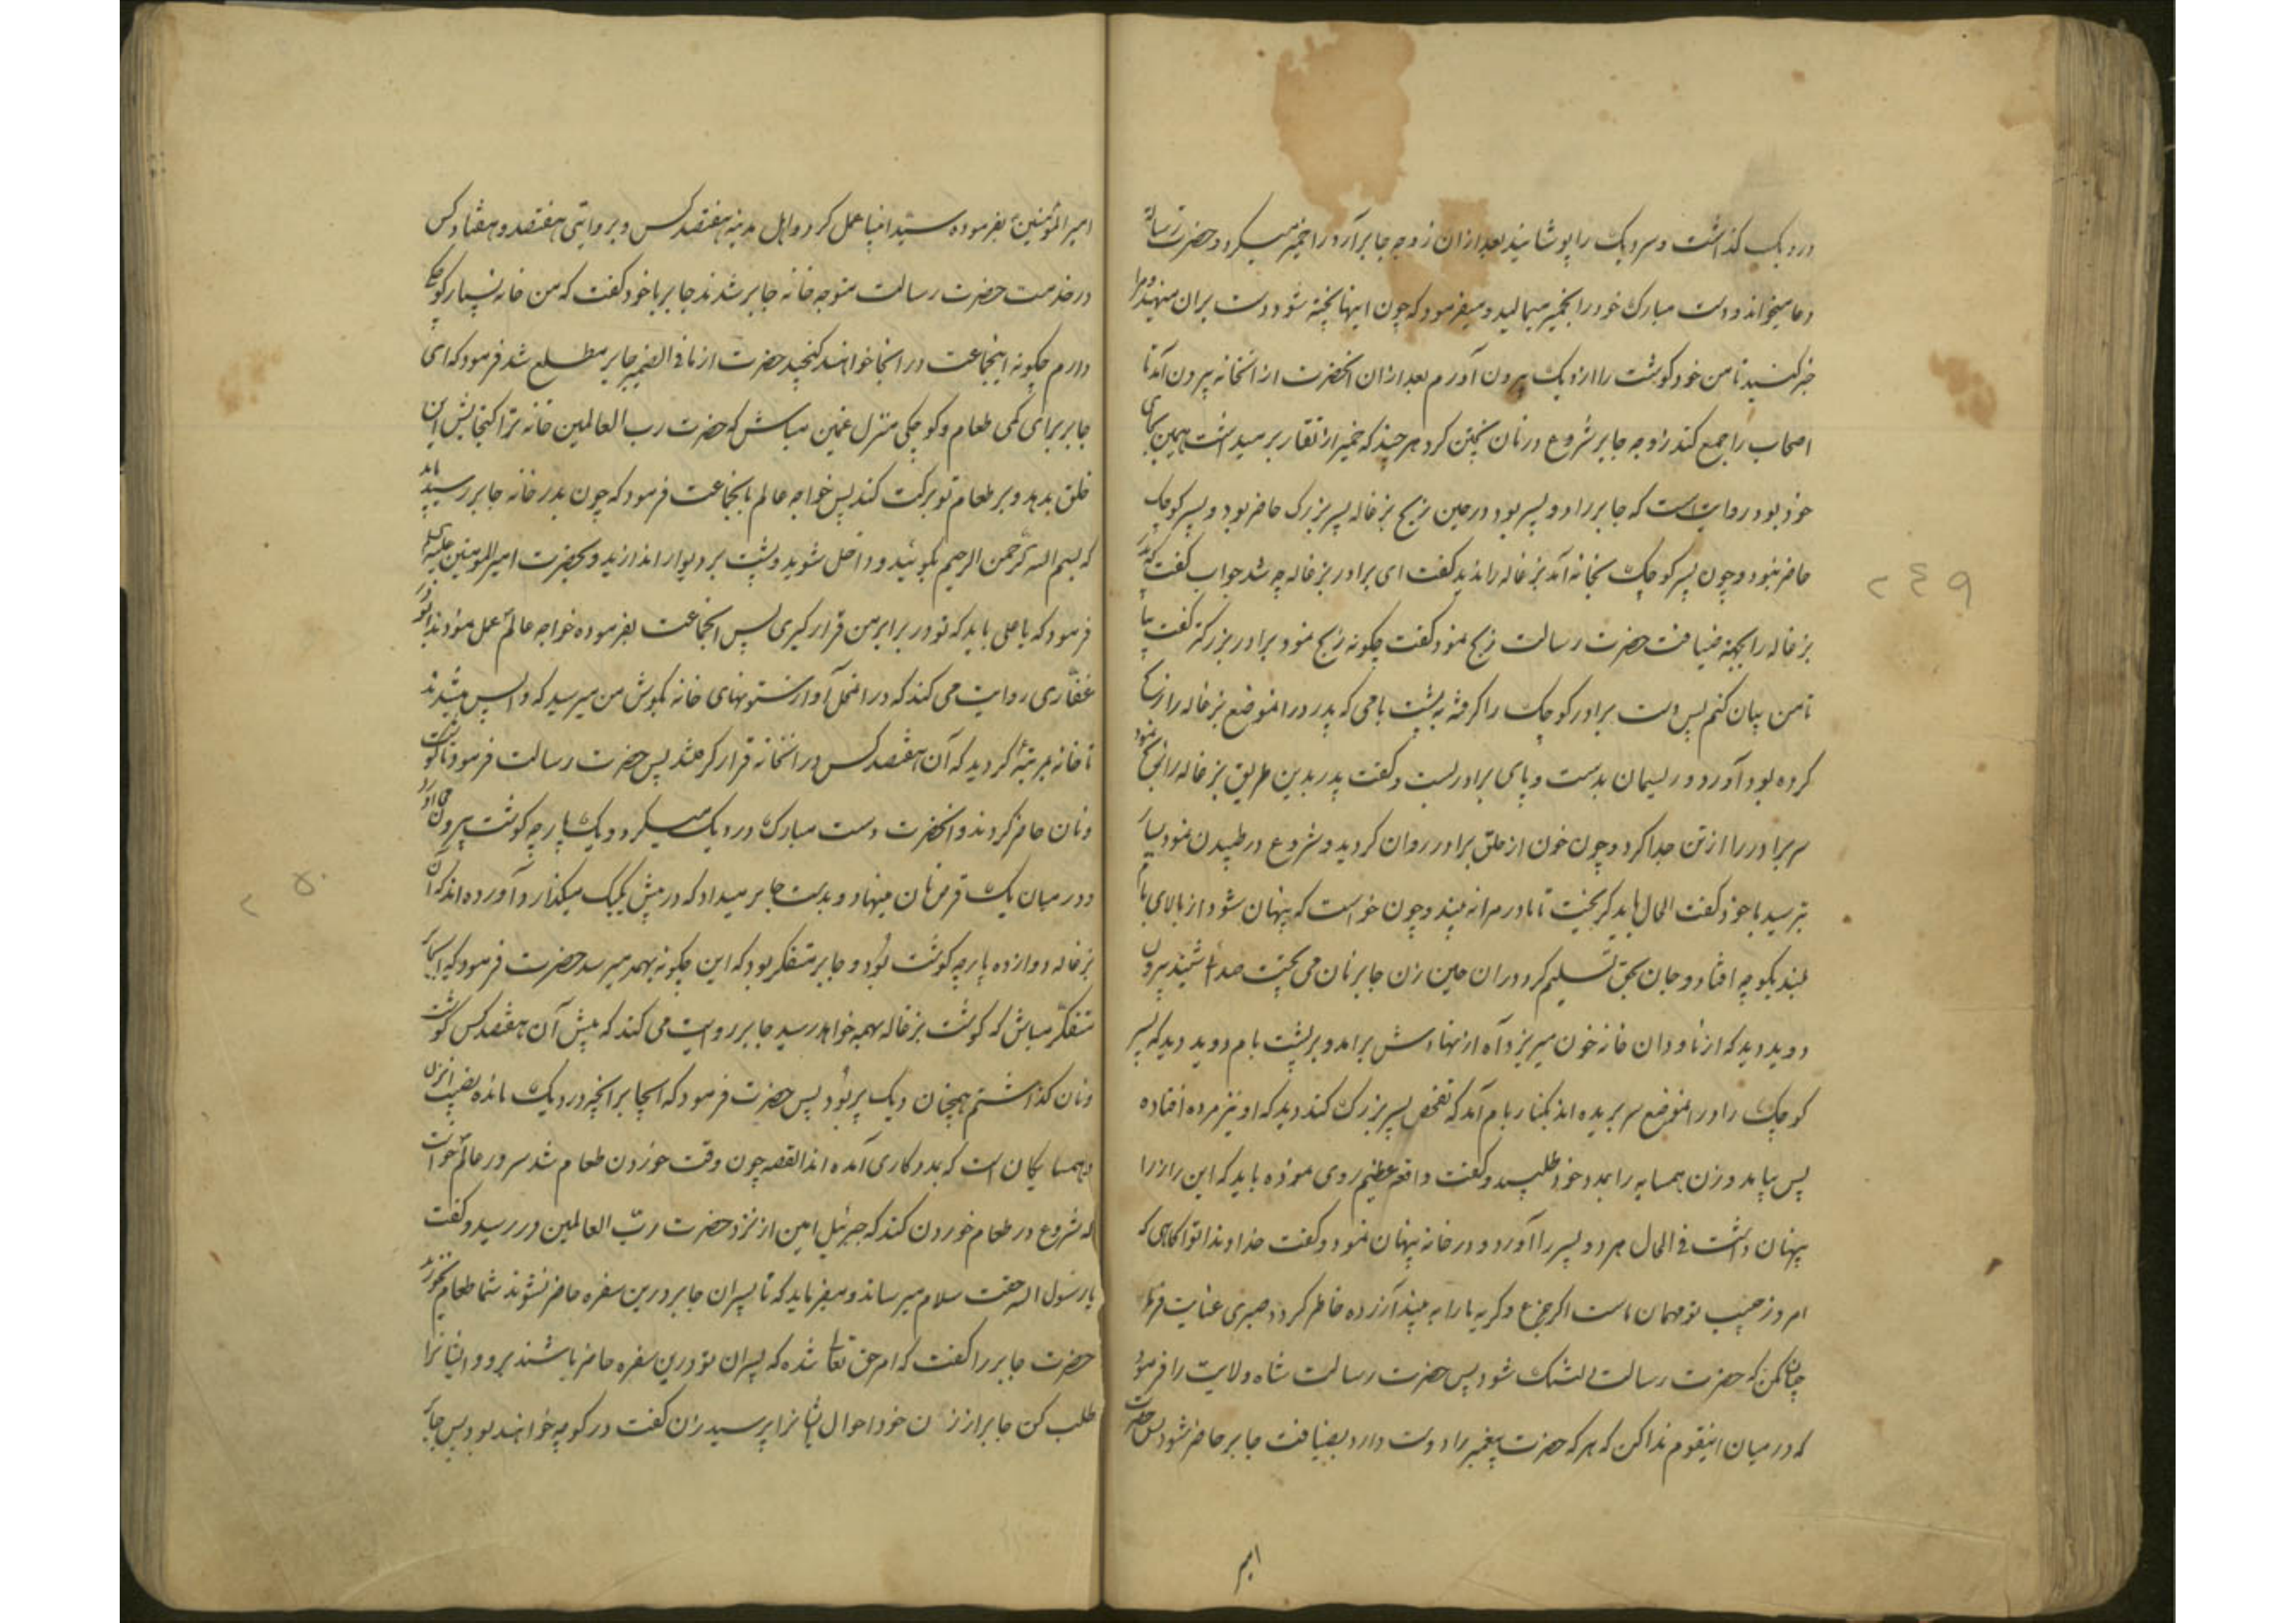 در دیک کذاشت و سر دیک را پوشانید بعد ازان زوجه جابر آرد را خمیر میکرد و حضرت رسالة
دعا میخواند و دست مبارک خود را بخمیر میمالید و میفرمود که چون اینها پخته شود دست بران منهید و مرا
خبر کنید تا من خود کوشت را از دیک بیرون آورم بعد ازان انحضرت از انخانه بیرون آمد تا
اصحاب را جمع کند زوجه جابر شروع در نان پختن کرد هر چند که خمیر از تغار بر میداشت همین بجای
خود بود روایت است که جابر را دو پسر بود در حین ذبح بزغاله پسر بزرک حاضر بود و پسر کوچک
حاضر نبود و چون پسر کوچک بخانه آمد بزغاله را ندید کفت ای برادر بزغاله چه شد جواب کفت که پدر
بزغاله را بجهة ضیافت حضرت رسالت ذبح نمود کفت چکونه ذبح نمود برادر بزرکتر کفت بیا
تا من بیان کنم پس دست برادر کوچک را کرفته به پشت بامی که پدر در انموضع بزغاله را ذبح
کرده بود آورد و ریسمان بدست و پای برادر بست و کفت پدر بدین طریق بزغاله را ذبح نمود
سر برادر را از تن جدا کرد و چون خون از حلق برادر روان کردید و شروع در طپیدن نمود بسیار
بترسید با خود کفت الحال باید کریخت تا مادر مرا نه بیند و چون خواست که پنهان شود از بالای بام
بلند بکوچه افتاد و جان بحق تسلیم کرد دران حین زن جابر نان می پخت صدا شنید بیرون
دوید دید که از ناودان خانه خون میریزد آه از نهادش برامد و بر پشت بام دوید دید که پسر
کوچک را در انموضع سر بریده اند بکنار بام آمد که تفحص پسر بزرک کند دید که او نیز مرده افتاده
پس بیامد و زن همسایه را بمدد خود طلبید و کفت واقعه عظیم روی نموده باید که این راز را
پنهان داشت فی الحال هر دو پسر را آورد و در خانه پنهان نمود و کفت خداوندا تو اکاهی که
امروز حبیب تو مهمان ماست اکر جزع و کریه ما را به بیند آزرده خاطر کردد صبری عنایت فرما
چنان مکن که حضرت رسالت دلتنک شود پس حضرت رسالت شاه ولایت را فرمود
که در میان اینقوم ندا کن که هر که حضرت پیغمبر را دوست دارد بضیافت جابر حاضر شود پس حضرت
امیر
۲۴۹
امیر المؤمنین بفرموده سید انبیا عمل کرد و اهل مدینه هفتصد کس و بروایتی هفتصد و هفتاد کس
در خدمت حضرت رسالت متوجه خانه جابر شدند جابر با خود کفت که من خانه بسیار کوچکی
دارم چکونه اینجماعت در انجا خواهند کنجید حضرت از ما فی الضمیر جابر مطلع شد فرمود که ای
جابر برای کمی طعام و کوچکی منزل غمین مباش که حضرت رب العالمین خانه ترا کنجایش این
خلق بدهد و بر طعام تو برکت کند پس خواجه عالم بانجماعت فرمود که چون بدر خانه جابر رسید باید
که بسم الله الرحمن الرحیم بکوئید و داخل شوید و پشت بر دیوار اندازید و بحضرت امیر المومنین علیه السلام
فرمود که یا علی باید که تو در برابر من قرار کیری پس انجماعت بفرموده خواجه عالم عمل نمودند ابوذر
غفاری روایت می کند که در انمحل آواز ستونهای خانه بکوش من میرسید که واپس میشدند
تا خانه بمرتبهٔ کردید که آن هفتصد کس در انخانه قرار کرفتند پس حضرت رسالت فرمود تا کوشت
و نان حاضر کردند و انحضرت دست مبارک در دیک میکرد و یک پارچه کوشت بیرون می آورد
و در میان یک قرص نان مینهاد و بدست جابر میداد که در پیش یکیک میکذار و آورده اند که آن
بزغاله دوازده پارچه کوشت بود و جابر متفکر بود که این چکونه بهمه میرسد حضرت فرمود که ای جابر
متفکر مباش که کوشت بزغاله بهمه خواهد رسید جابر روایت می کند که پیش آن هفتصد کس کوشت
و نان کذاشتم همچنان دیک پر بود پس حضرت فرمود که ای جابر انچه در دیک مانده نصیب انزن
و همسایکان است که بمددکاری آمده اند القصه چون وقت خوردن طعام شد سرور عالم خواست
که شروع در طعام خوردن کند که جبرئیل امین از نزد حضرت رب العالمین در رسید و کفت
یا رسول الله حقت سلام میرساند و میفرماید که تا پسران جابر درین سفره حاضر نشوند شما طعام نخورید
حضرت جابر را کفت که امر حق تعالی شده که پسران تو درین سفره حاضر باشند برو و ایشانرا
طلب کن جابر از زن خود احوال ایشانرا پرسید زن کفت در کوچه خواهند بود پس جابر
۲۵۰